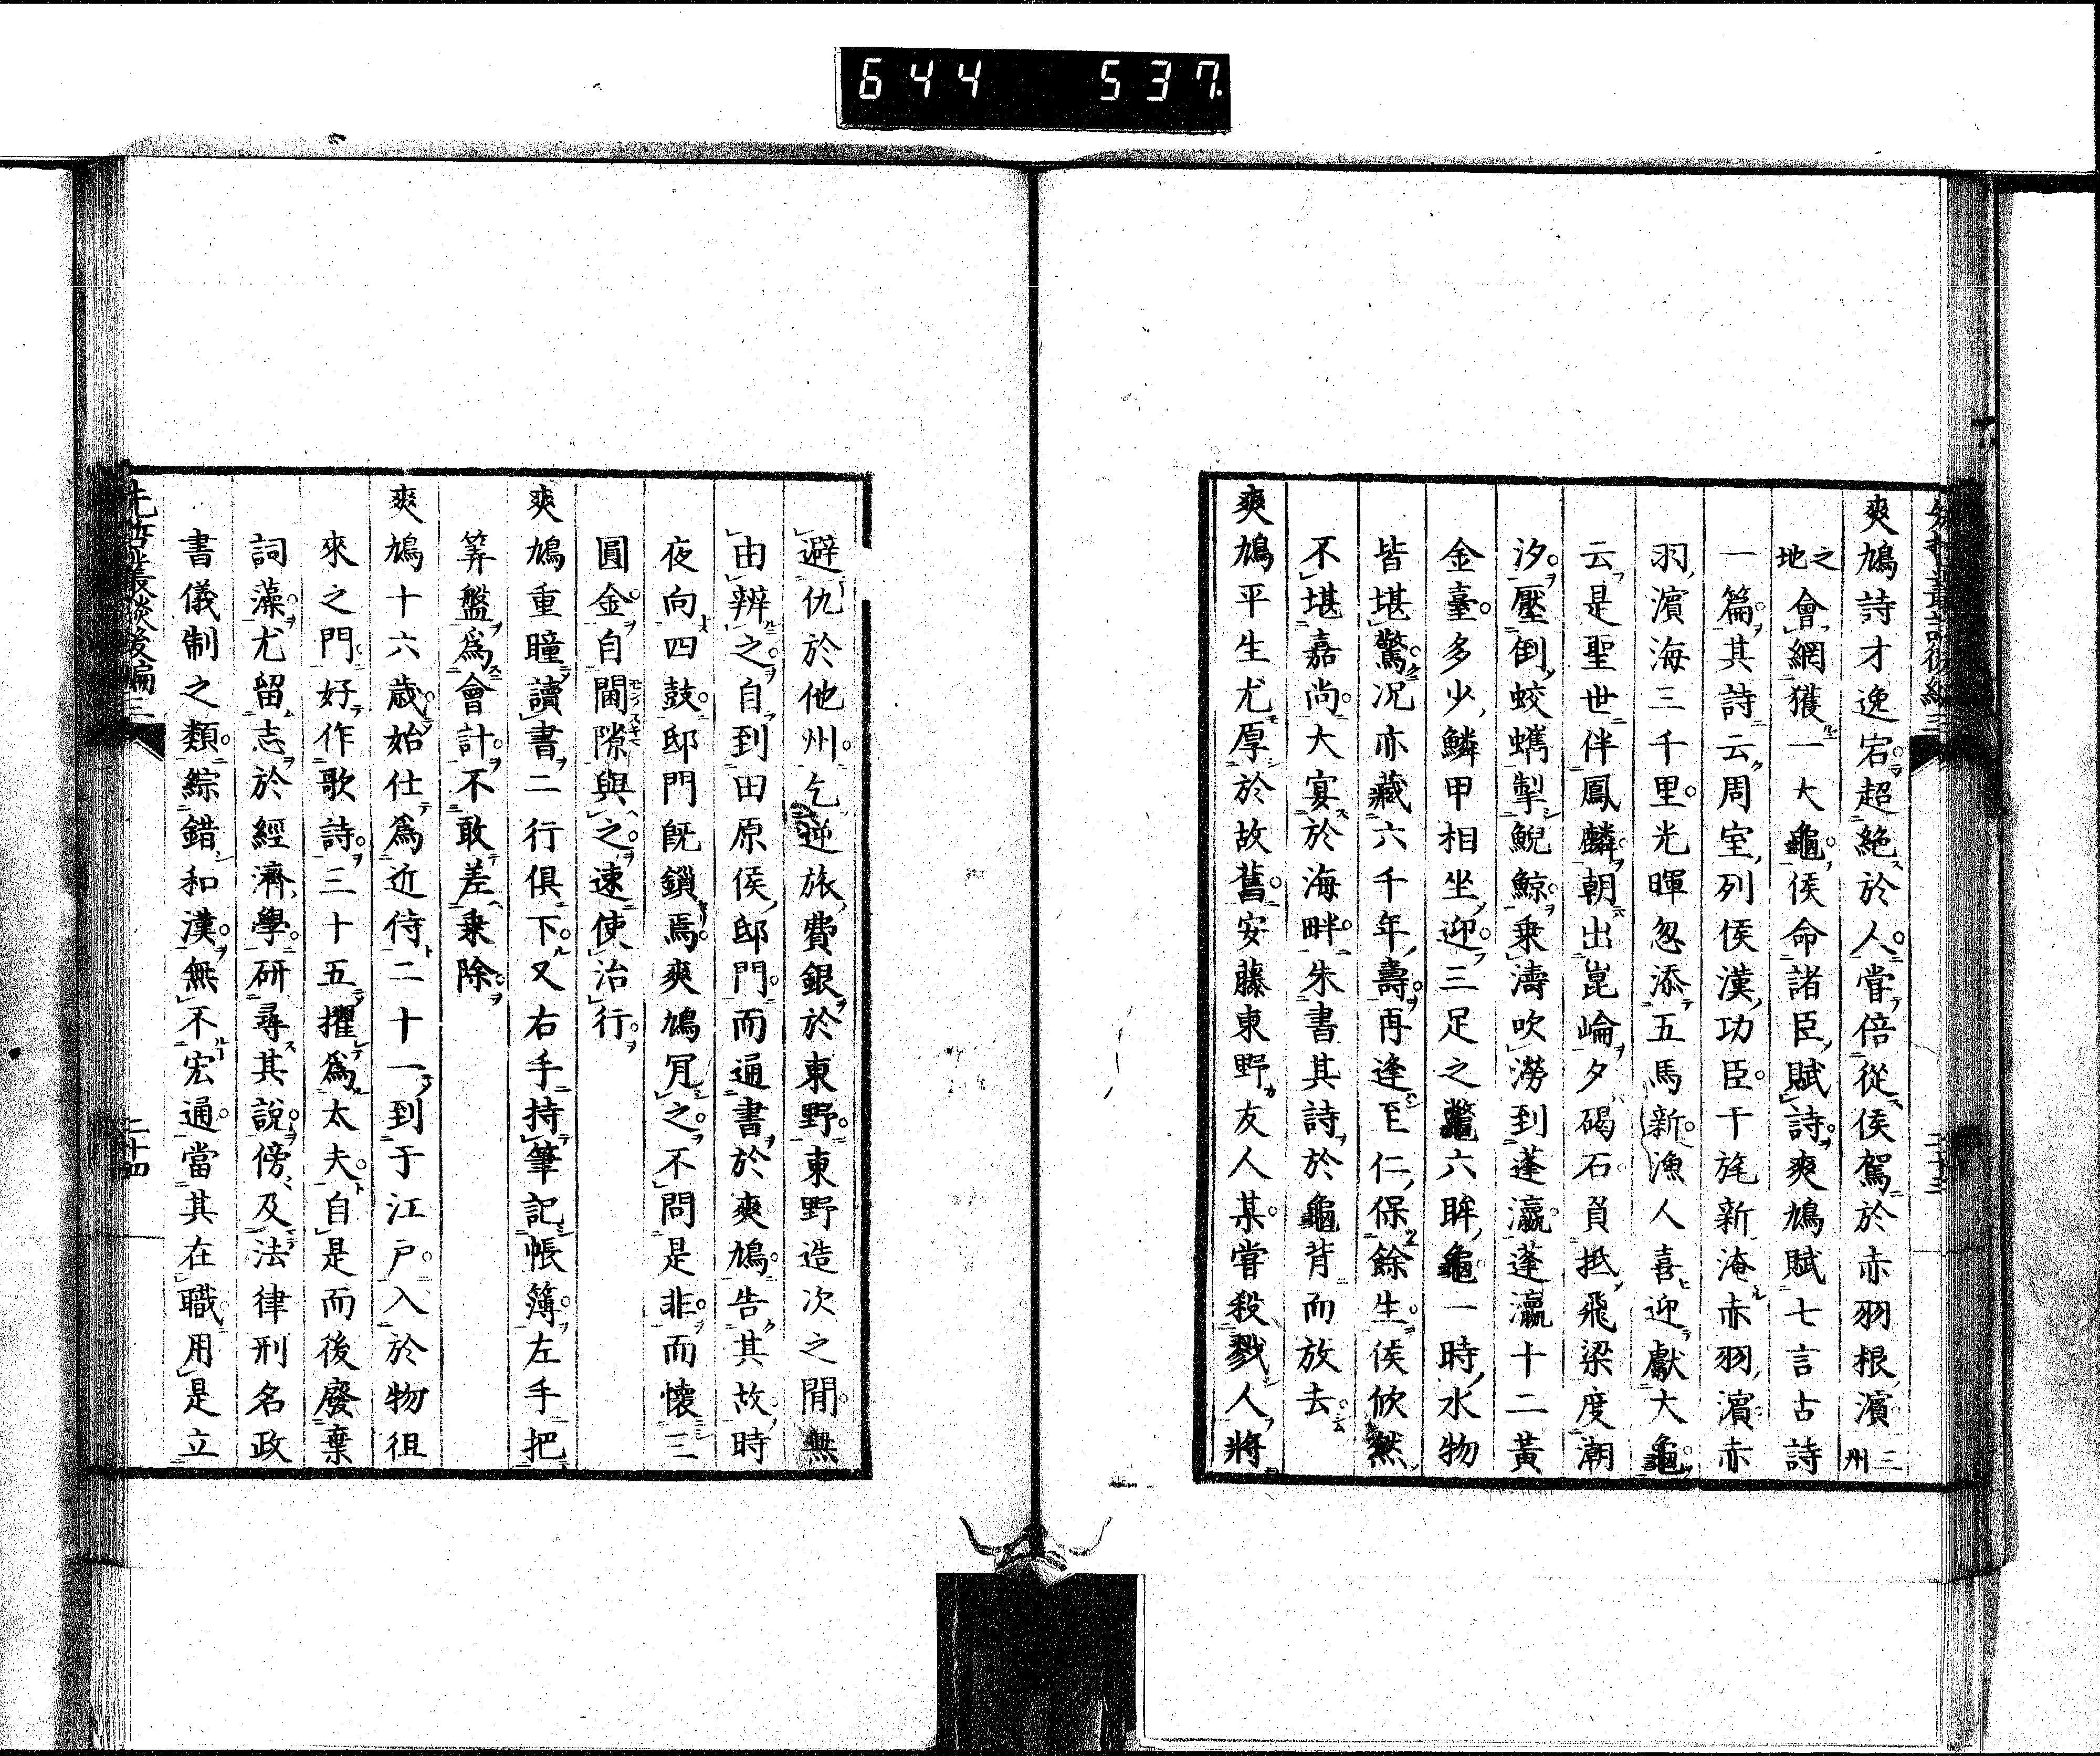 644 537.
爽鳩詩才逸宕超絶於人嘗倍從侯駕於赤羽根濱三州
之地會網獲一大龜侯命諸臣賦詩爽鳩賦七言古詩
一篇其詩云周室列侯漢功臣干旄新淹赤羽濱赤
羽濱海三千里光暉忽添五馬新漁人喜迎獻大龜
云是聖世伴鳳麟朝出崑崘夕碣石負抵飛梁度潮
汐壓倒蛟螭掣鯢鯨乗濤吹澇到蓬瀛蓬瀛十二黃
金臺多少鱗甲相坐迎三足之鼈六眸龜一時水物
皆堪驚况亦藏六千年壽再逢至仁保餘生侯攸然
不堪嘉尚大宴於海畔朱書其詩於龜背而放去
爽鳩平生尤厚於故舊安藤東野友人某嘗殺戮人將
避仇於他州乞逆旅費銀於東野東野造次之間無
由辨之自到田原侯邸門而通書於爽鳩告其故時
夜向四鼓邸門既鎖焉爽鳩肎之不問是非而懷三
圓金自門隙與之速使治行
爽鳩重瞳讀書二行俱下又右手持筆記帳簿左手把
筭盤爲會計不敢差乗除
爽鳩十六歳始仕爲近侍二十一到于江戸入於物徂
來之門好作歌詩三十五擢爲太夫自是而後廢棄
詞藻尤留志於經濟學研尋其說傍及法律刑名政
書儀制之類綜錯和漢無不宏通當其在職用是立
先哲叢談後編三
二十四